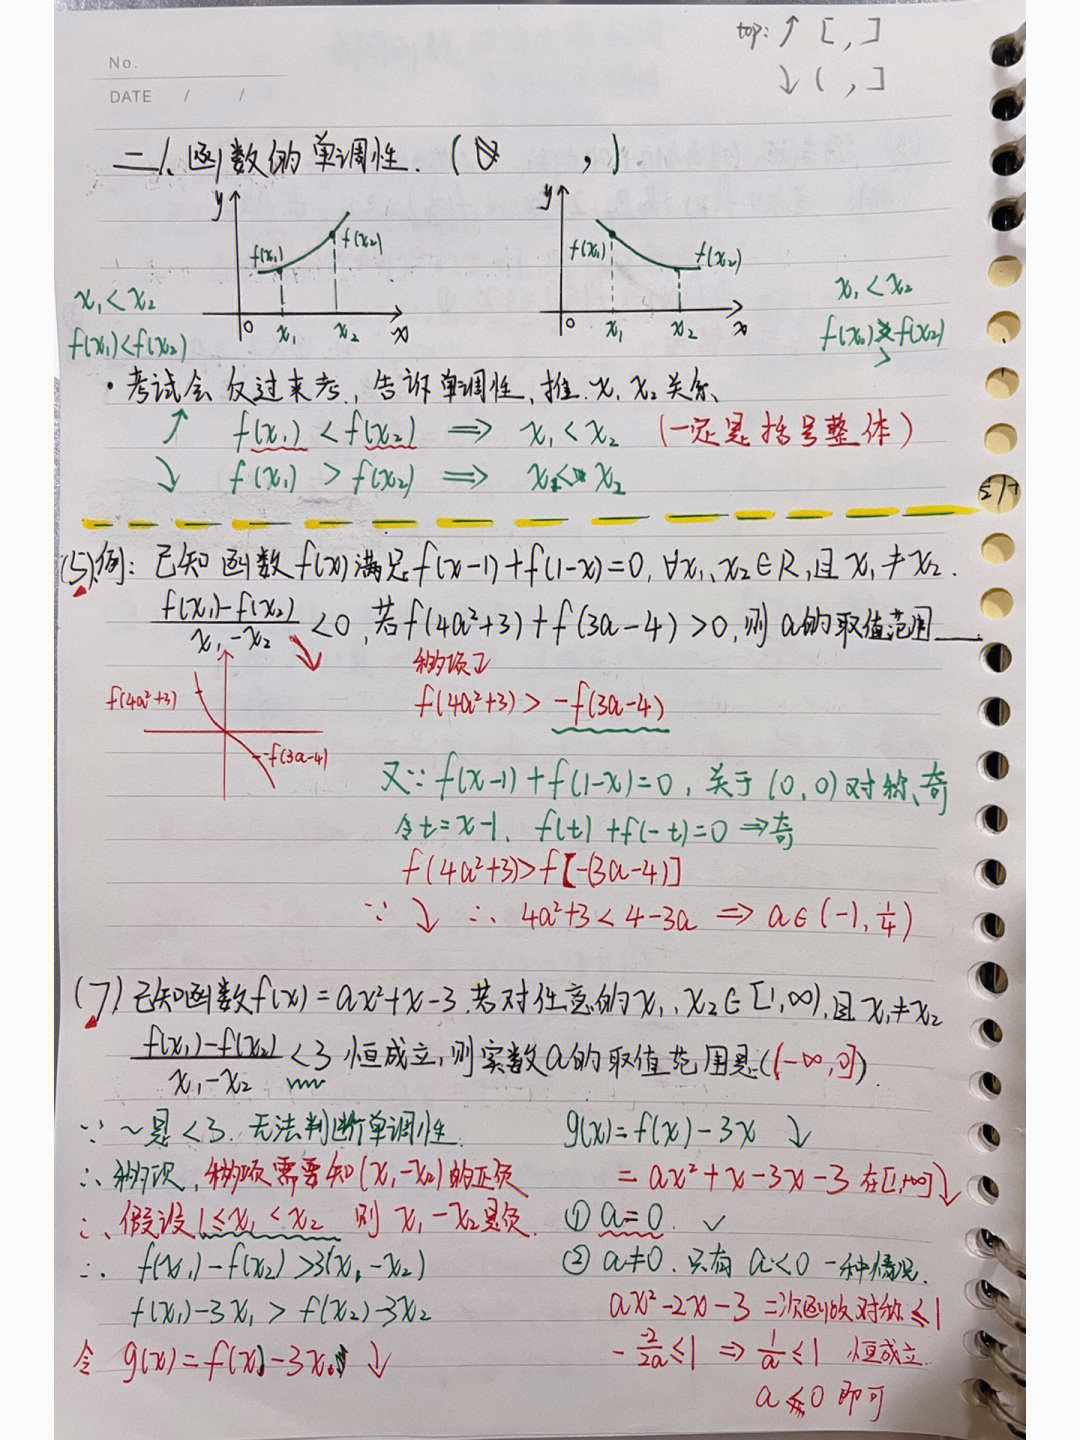 top: ↑ [ , ]
↓ ( , ]
No.
DATE / /
二、函数的单调性. ( , )
y f(x₁) f(x₂) 0 x₁ x₂ x
y f(x₁) f(x₂) 0 x₁ x₂ x
x₁<x₂
f(x₁)<f(x₂)
x₁<x₂
f(x₁)>f(x₂)
·考试会反过来考，告诉单调性，推x₁ x₂关系
↑ f(x₁) < f(x₂) ⇒ x₁<x₂ (一定是括号整体)
↓ f(x₁) > f(x₂) ⇒ x₁<x₂
(5)例: 已知函数f(x)满足f(x-1)+f(1-x)=0, ∀x₁、x₂∈R,且x₁≠x₂.
f(x₁)-f(x₂)/x₁-x₂ <0,若f(4a²+3)+f(3a-4)>0,则a的取值范围___
移项↓
f(4a²+3) > -f(3a-4)
f(4a²+3)
-f(3a-4)
又∵f(x-1)+f(1-x)=0, 关于(0,0)对称、奇
令t=x-1, f(t)+f(-t)=0 ⇒奇
f(4a²+3)>f[-(3a-4)]
∵ ↓ ∴ 4a²+3<4-3a ⇒ a∈(-1, 1/4)
(7)已知函数f(x)=ax²+x-3.若对任意的x₁、x₂∈[1,∞),且x₁≠x₂
f(x₁)-f(x₂)/x₁-x₂ <3 恒成立,则实数a的取值范围是((-∞,0]).
∵ ~是<3. 无法判断单调性.
∴ 移项,移项需要知(x₁-x₂)的正负
∴ 假设1≤x₁<x₂ 则 x₁-x₂是负.
∴ f(x₁)-f(x₂)>3(x₁-x₂)
f(x₁)-3x₁ > f(x₂)-3x₂
令 g(x)=f(x)-3x ↓
g(x)=f(x)-3x ↓
=ax²+x-3x-3 在[1,+∞]↓
① a=0. ✓
② a≠0. 只有 a<0 一种情况.
ax²-2x-3 二次函数对称≤1
- -2/2a ≤1 ⇒ 1/a ≤1 恒成立.
a≤0 即可